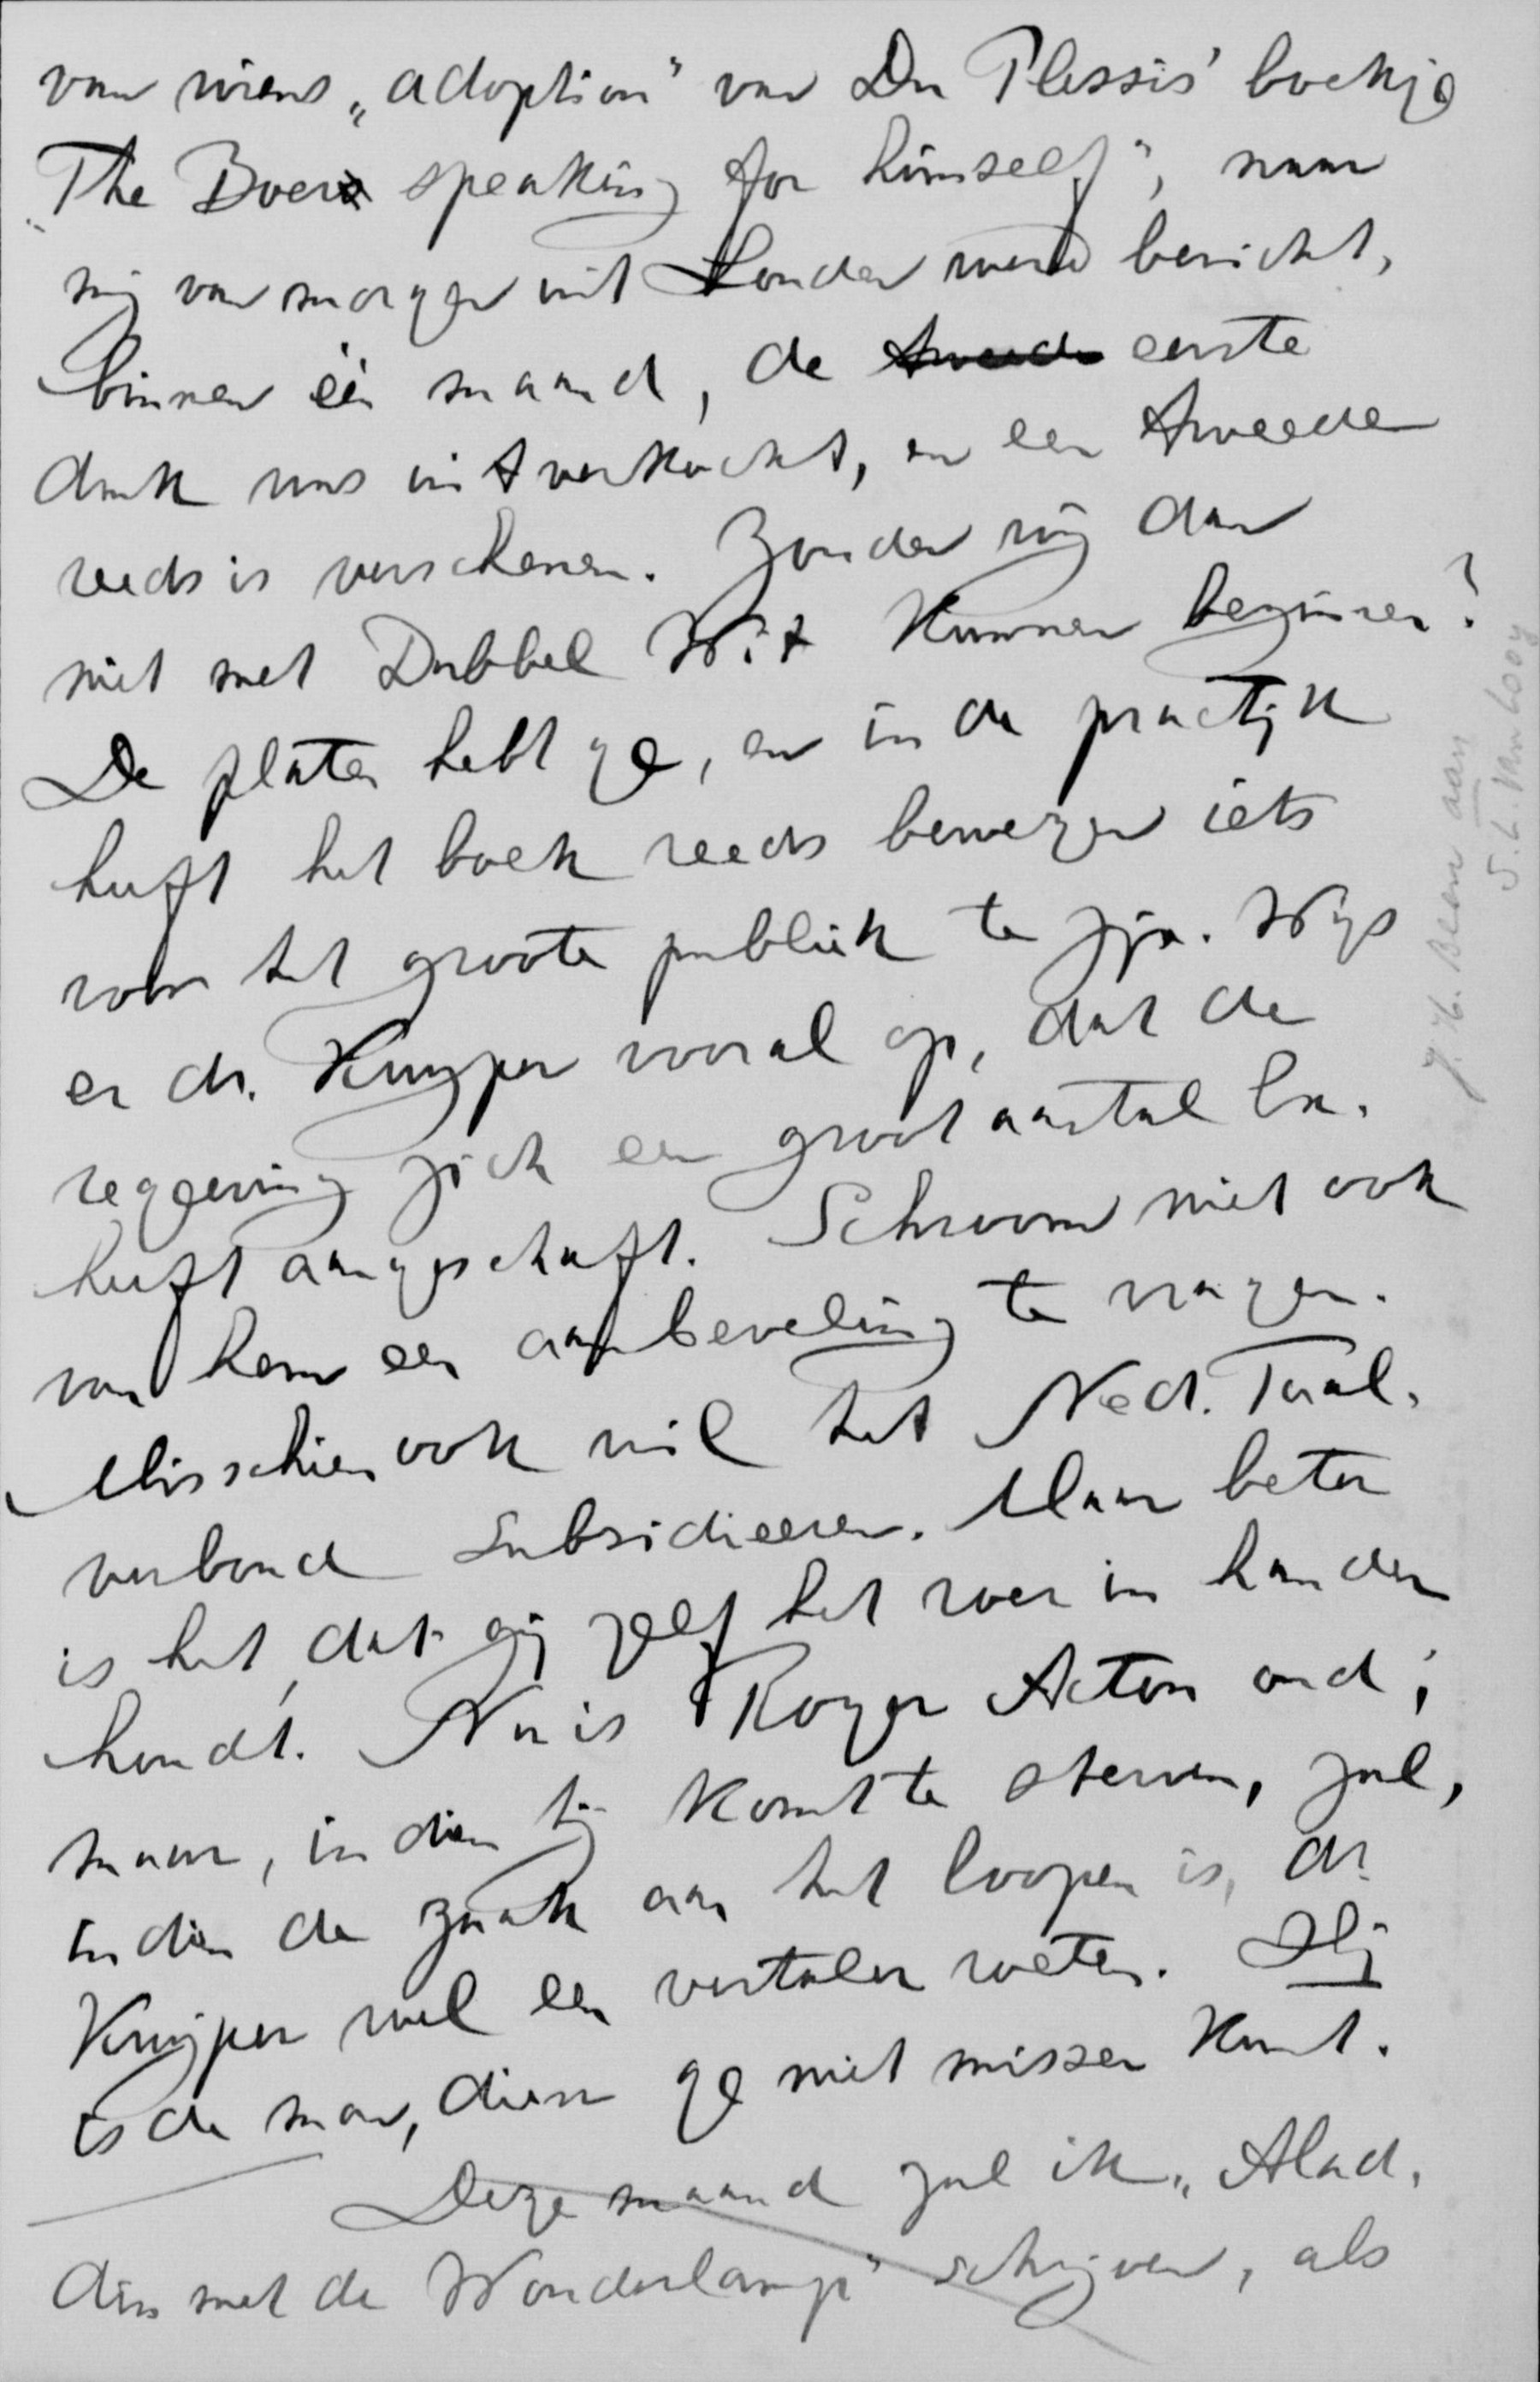 van wiens „adoption" van Du Plessis' boekje
„The Boer speaking for himself", naar
mij van morgen uit Londen werd bericht,
binnen één maand, de tweede eerste
druk was uitverkocht, en een tweede
reeds is verschenen. Zouden wij dan
niet met Dubbel Wit kunnen beginnen?
De platen hebt ge, en in de practijk
heeft het boek reeds bewezen iets
voor het groote publiek te zijn. Wijs
er dr. Kuyper vooral op, dat de
regeering zich een groot aantal Ex.
heeft aangeschaft. Schroom niet ook
van hem een aanbeveling te vragen.
Misschien ook wil het Ned. Taal-
verbond subsidieeren. Maar beter
is het, dat gij zelf het roer in handen
houdt. Nu is Roger Acton oud;
maar, indien hij komt te sterven, zal,
indien de zaak aan het loopen is, dr.
Kuijper wel een vertaler weten. Hij
is de man, dien ge niet missen kunt.
Deze maand zal ik „Alad-
din met de Wonderlamp" schrijven, als
J.H. Been aan
S.L. van Looy